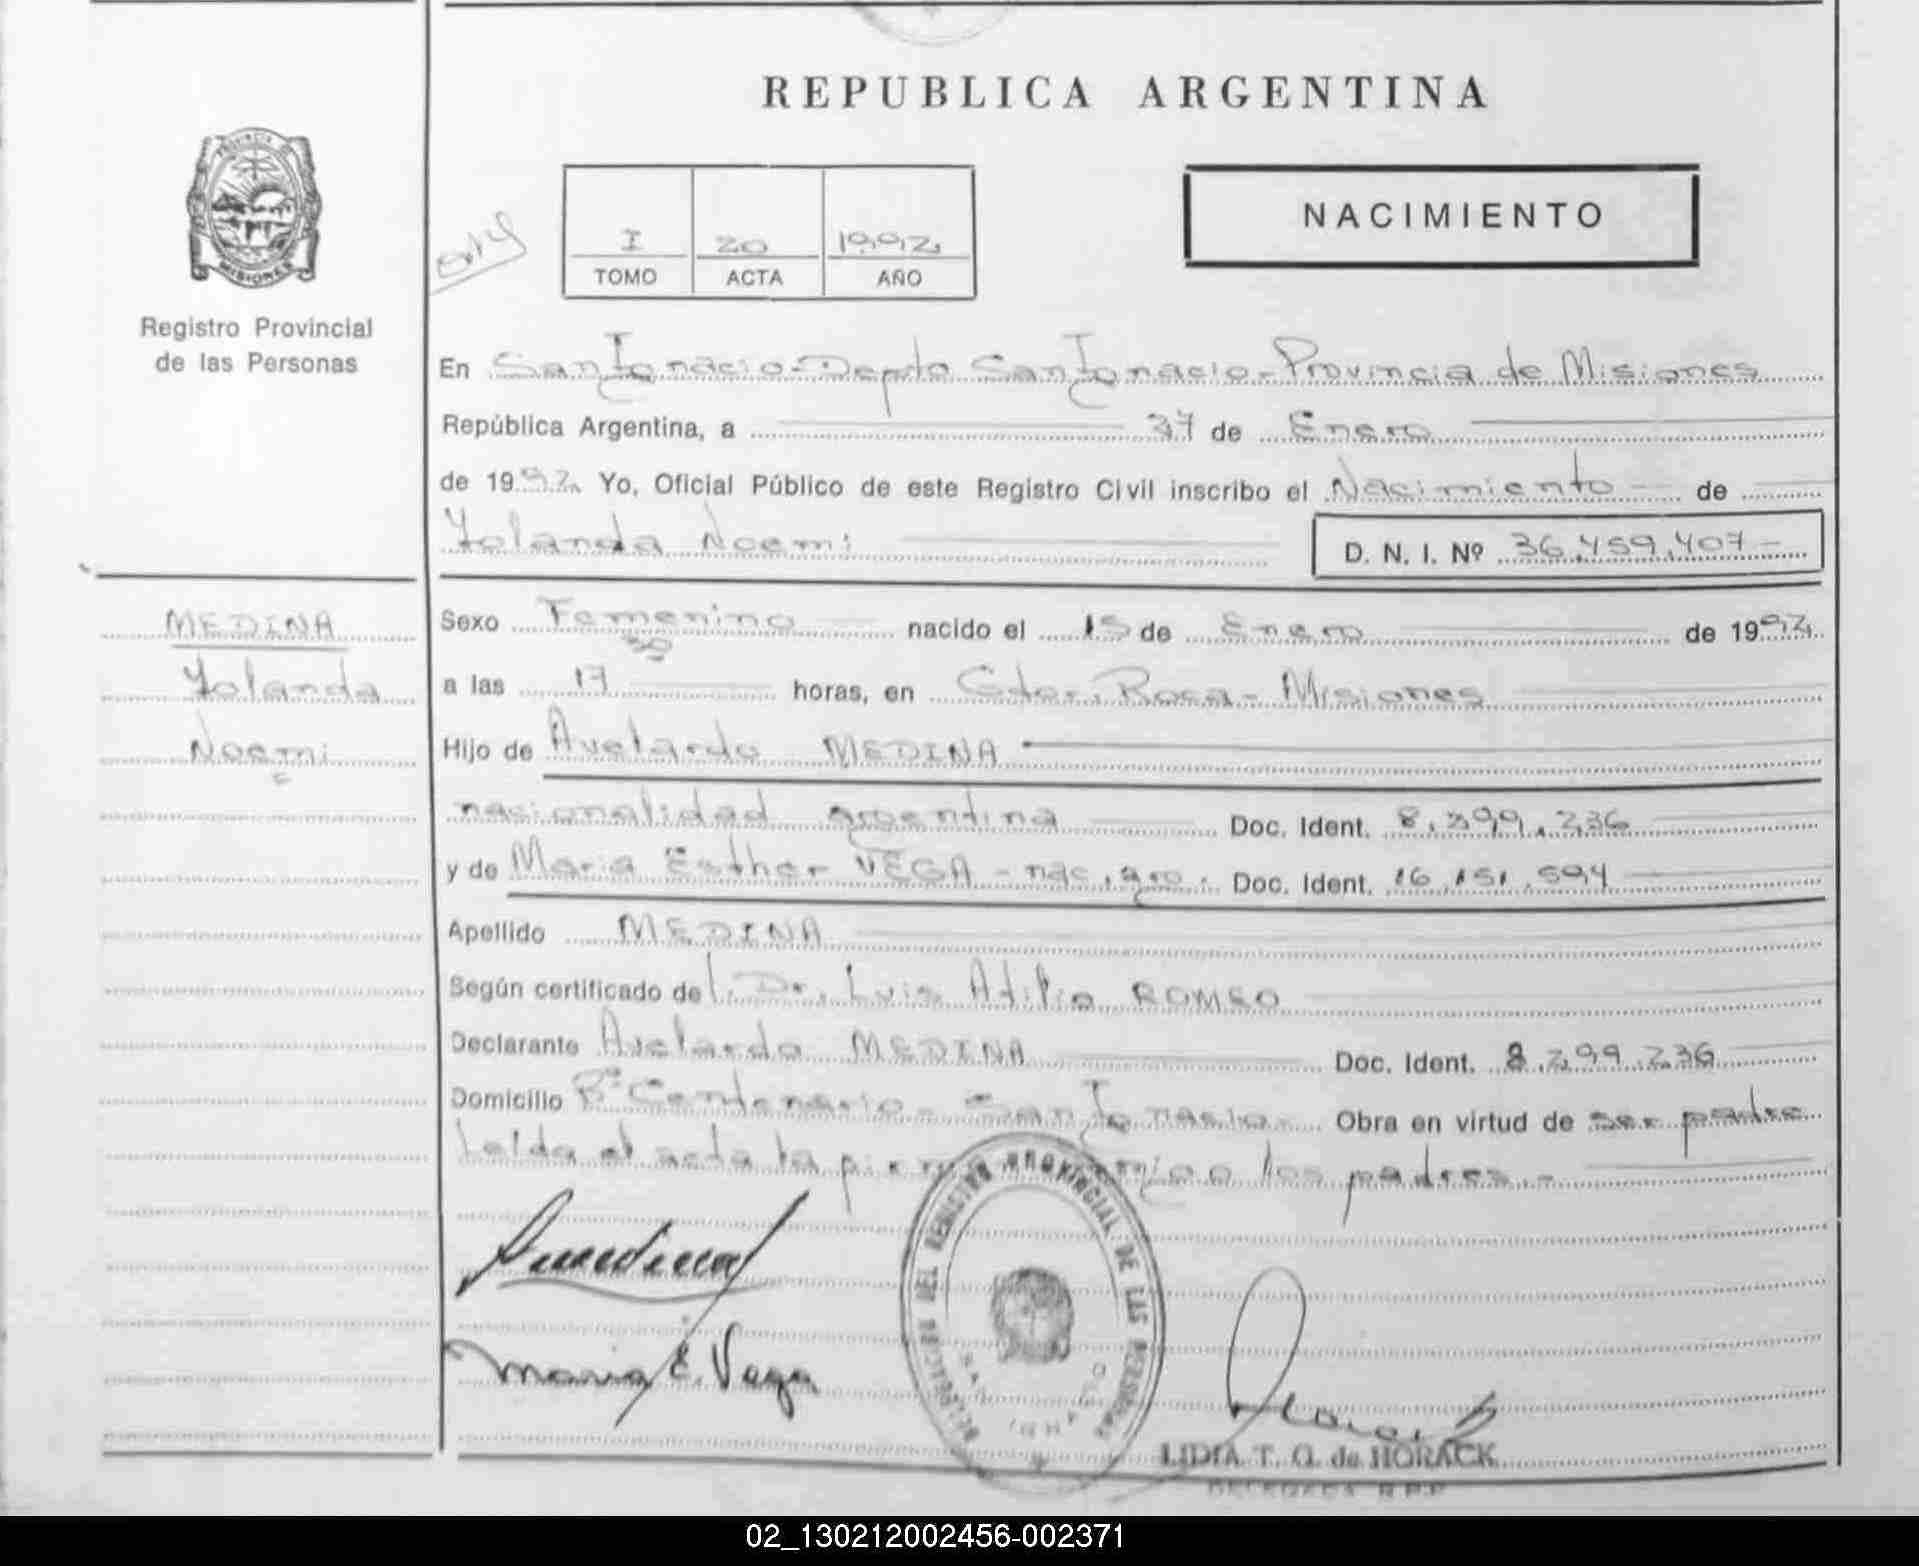 REPUBLICA ARGENTINA
PROVINCIA DE
MISIONES
Registro Provincial
de las Personas
I 20 1992
TOMO ACTA AÑO
NACIMIENTO
En San Ignacio - Depto San Ignacio - Provincia de Misiones
República Argentina, a de Enero
de 1992 Yo, Oficial Público de este Registro Civil inscribo el Nacimiento de
Yolanda Noemi D. N. I. Nº 36.459.407 -
MEDINA
Yolanda
Noemi
Sexo Femenino nacido el 15 de Enero de 1992
a las 17 30 horas, en Gdor. Roca - Misiones
Hijo de Avelardo MEDINA
nacionalidad argentina Doc. Ident. 8.299.236
y de Maria Esther VEGA - nac. arg. Doc. Ident. 16.151.594
Apellido MEDINA
Según certificado de l. Dr. Luis Atilio ROMEO
Declarante Avelardo MEDINA Doc. Ident. 8.299.236
Domicilio Bº Centenario - San Ignacio - Obra en virtud de ser padre
Leída el acta la los padres. -
Amedina
Maria E. Vega
DELEGACION DEL REGISTRO PROVINCIAL DE LAS PERSONAS
SAN IGNACIO
LIDIA T. G. de HORACK
DELEGADA R.P.P.
02_130212002456-002371